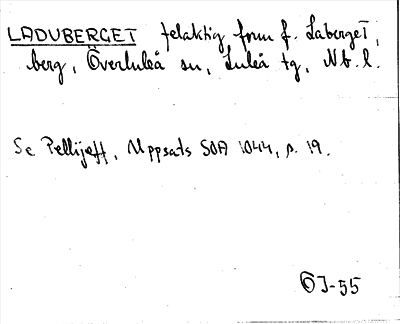 LADUBERGET felaktig form f. Laberget,
berg, Överluleå sn, Luleå tg, Nb. l.
Se Pellijeff, Uppsats SOA 1044, s. 19.
ÖJ-55